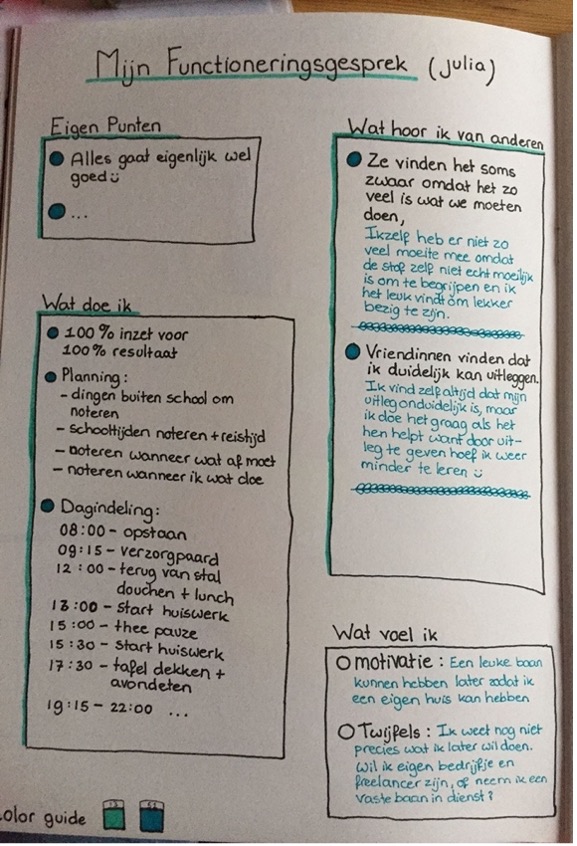 Mijn Functioneringsgesprek (julia)
Eigen Punten
Alles gaat eigenlijk wel
goed☺
...
Wat doe ik
100% inzet voor
100% resultaat
Planning:
- dingen buiten school om
noteren
- schooltijden noteren + reistijd
- noteren wanneer wat af moet
- noteren wanneer ik wat doe
Dagindeling:
08:00 - opstaan
09:15 - verzorgpaard
12:00 - terug van stal
douchen + lunch
13:00 - start huiswerk
15:00 - thee pauze
15:30 - start huiswerk
17:30 - tafel dekken +
avondeten
19:15 - 22:00 ...
Wat hoor ik van anderen
Ze vinden het soms
zwaar omdat het zo
veel is wat we moeten
doen,
Ikzelf heb er niet zo
veel moeite mee omdat
de stof zelf niet echt moeilijk
is om te begrijpen en ik
het leuk vindt om lekker
bezig te zijn.
Vriendinnen vinden dat
ik duidelijk kan uitleggen.
Ik vind zelf altijd dat mijn
uitleg onduidelijk is, maar
ik doe het graag als het
hen helpt want door uit-
leg te geven hoef ik weer
minder te leren ☺
Wat voel ik
motivatie: Een leuke baan
kunnen hebben later zodat ik
een eigen huis kan hebben
Twijfels: Ik weet nog niet
precies wat ik later wil doen.
Wil ik eigen bedrijfje en
freelancer zijn, of neem ik een
vaste baan in dienst?
color guide